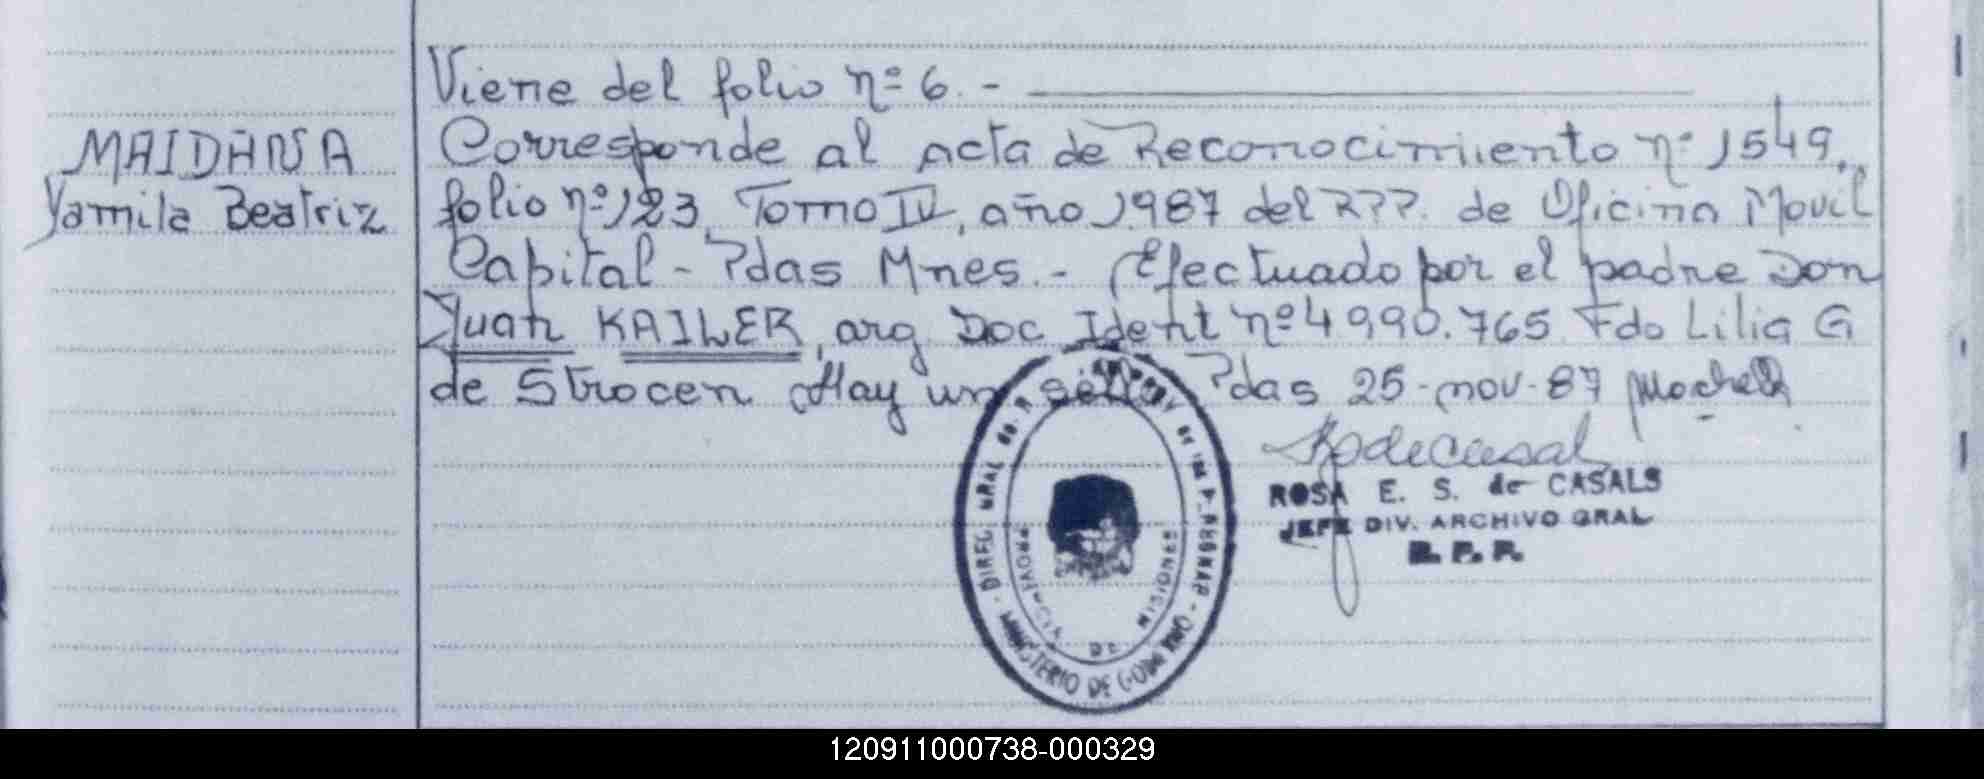 Viene del folio nº 6. -
MAIDANA
Yamila Beatriz
Corresponde al acta de Reconocimiento nº 1549,
folio nº 123, Tomo IV, año 1987 del R.P.P. de Oficina Movil
Capital - Pdas Mnes. - Efectuado por el padre Don
Juan KAILER, arg Doc Ident nº 4990.765 Fdo Lilia G
de Strocen Hay un sello Pdas 25-nov-87
ROSA E. S. de CASALS
JEFE DIV. ARCHIVO GRAL
R. P. P.
MINISTERIO DE GOBIERNO
PROVINCIA DE MISIONES
120911000738-000329